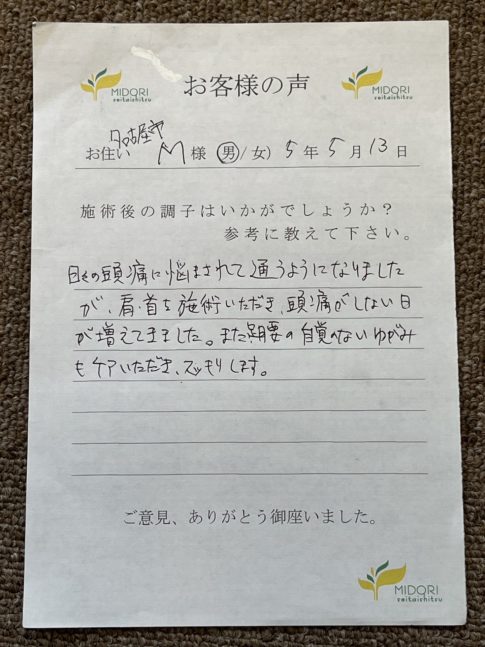 MIDORI
seitaishitsu
お客様の声
MIDORI
seitaishitsu
名古屋市
お住い M 様 (男/女) 5 年 5 月 13 日
施術後の調子はいかがでしょうか?
参考に教えて下さい。
日々の頭痛に悩まされて通うようになりました
が、肩・首を施術いただき、頭痛がしない日
が増えてきました。また足腰の自覚のないゆがみ
もケアいただき、スッキリします。
ご意見、ありがとう御座いました。
MIDORI
seitaishitsu